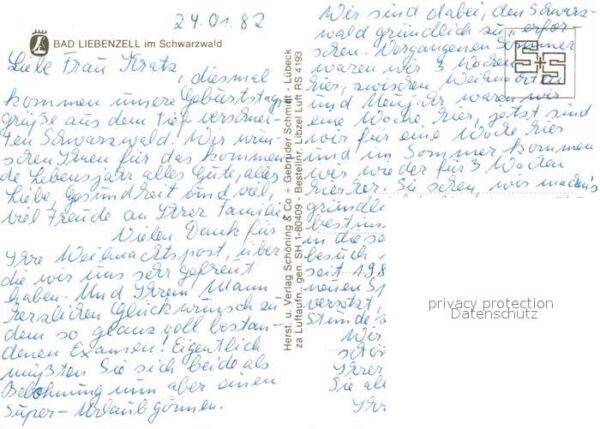 24.01.82
BAD LIEBENZELL im Schwarzwald
Liebe Frau Kratz,
diesmal
kommen unsere Geburtstags
grüße aus dem tief verschnei-
ten Schwarzwald. Wir wün-
schen Ihnen für das kommen
de Lebensjahr alles Gute, alles
Liebe, Gesundheit und viel,
viel Freude an Ihrer Familie
Vielen Dank für
Ihre Weihnachtspost, über
die wir uns sehr gefreut
haben. Und Ihrem Mann
herzlichen Glückwunsch zu
dem so glanzvoll bestan-
denen Examen. Eigentlich
müßten Sie sich beide als
Belohnung nun aber einen
Super-Urlaub gönnen.
Herst. u. Verlag Schöning & Co + Gebrüder Schmidt - Lübeck
za Luftaufn., gen. SH 1-80409 - Bestellnr. Libzel Luft RS 4193
Wir sind dabei, den Schwarz-
wald gründlich zu "erfor-
schen. Vergangenen Sommer
waren wir 3 Wochen
hier, zwischen Weihnachten
und Neujahr waren wir
eine Woche hier, jetzt sind
wir für eine Woche hier
und im Sommer kommen
wir wieder für 3 Wochen
hierher. Sie sehen, wir machen's
gründlic
bestimm
in die s
besuch
seit 198
neuen S
versetzt
Stunde
Wir
schö
Ihrer
Sie al
Ihre
privacy protection
Datenschutz